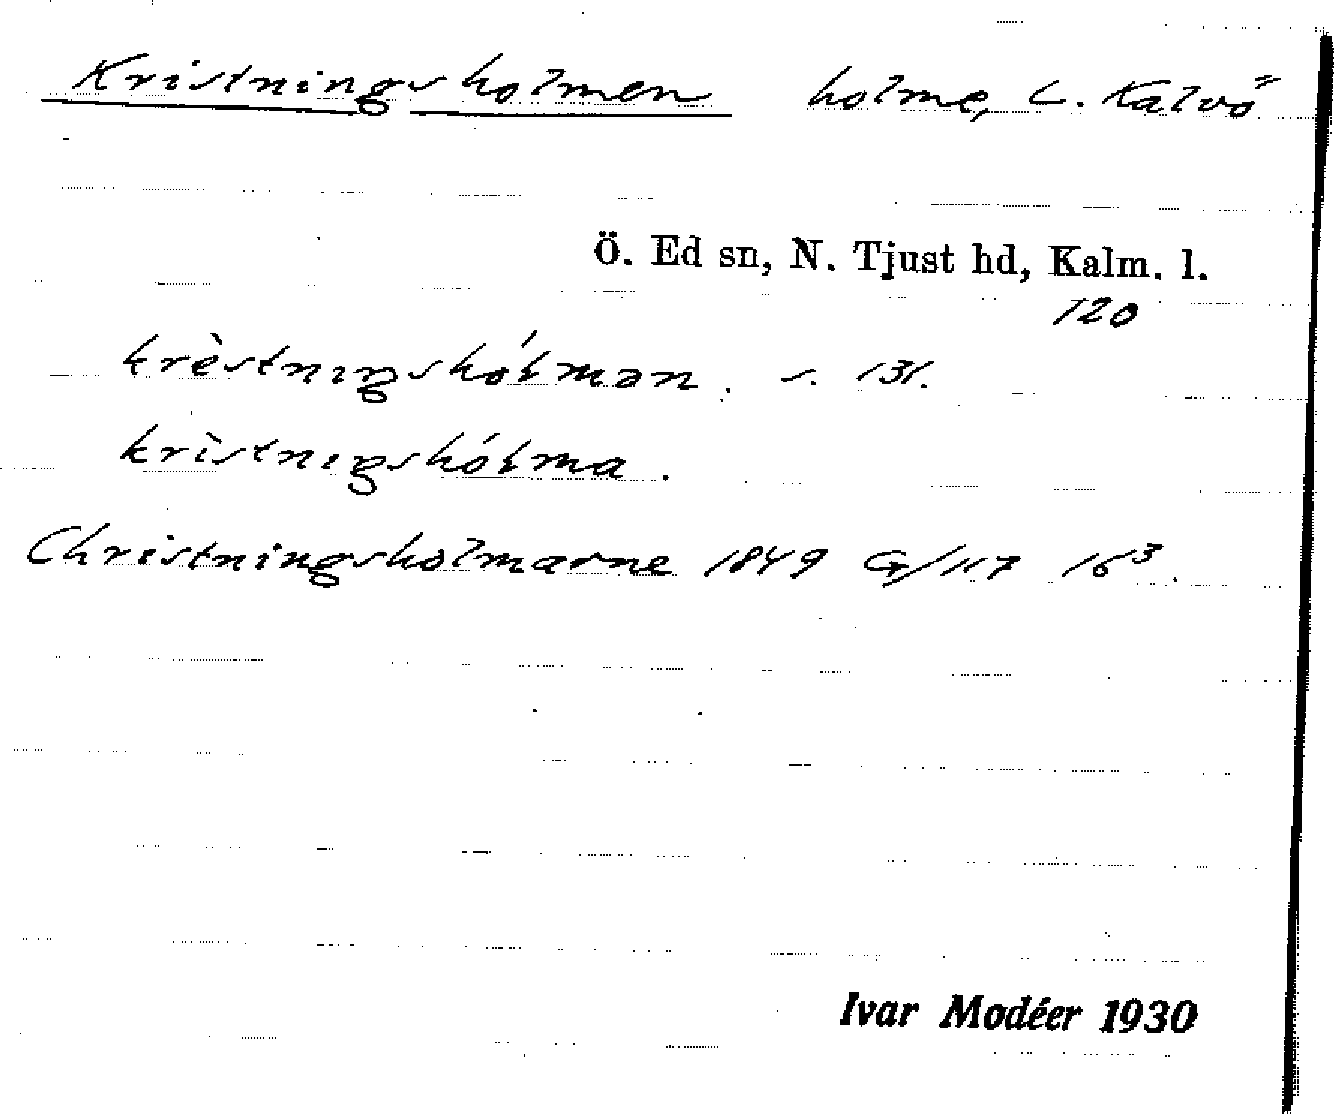 Kristningsholmen holme, L. Kalvö
Ö. Ed sn, N. Tjust hd, Kalm. l.
120
krèstnıŋshóɫmən. s. 131.
krìstnıŋshóɫma.
Christningsholmarne 1849 G/117 16³.
Ivar Modéer 1930